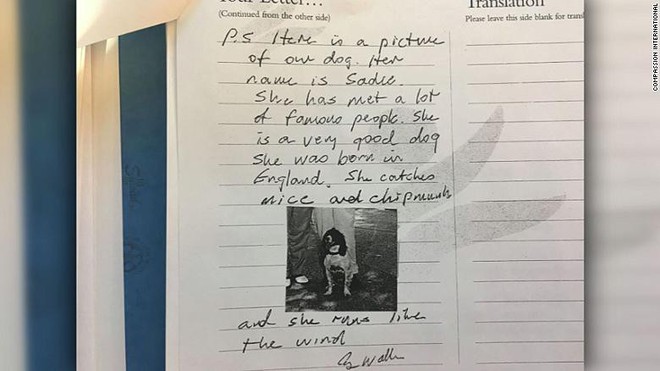 Your Letter...
(Continued from the other side)
Translation
Please leave this side blank for
P.S Here is a picture
of our dog. Her
name is Sadie.
She has met a lot
of famous people. She
is a very good dog
She was born in
England. She catches
mice and chipmunks
and she runs like
the wind
G. Walker
COMPASSION INTERNATIONAL